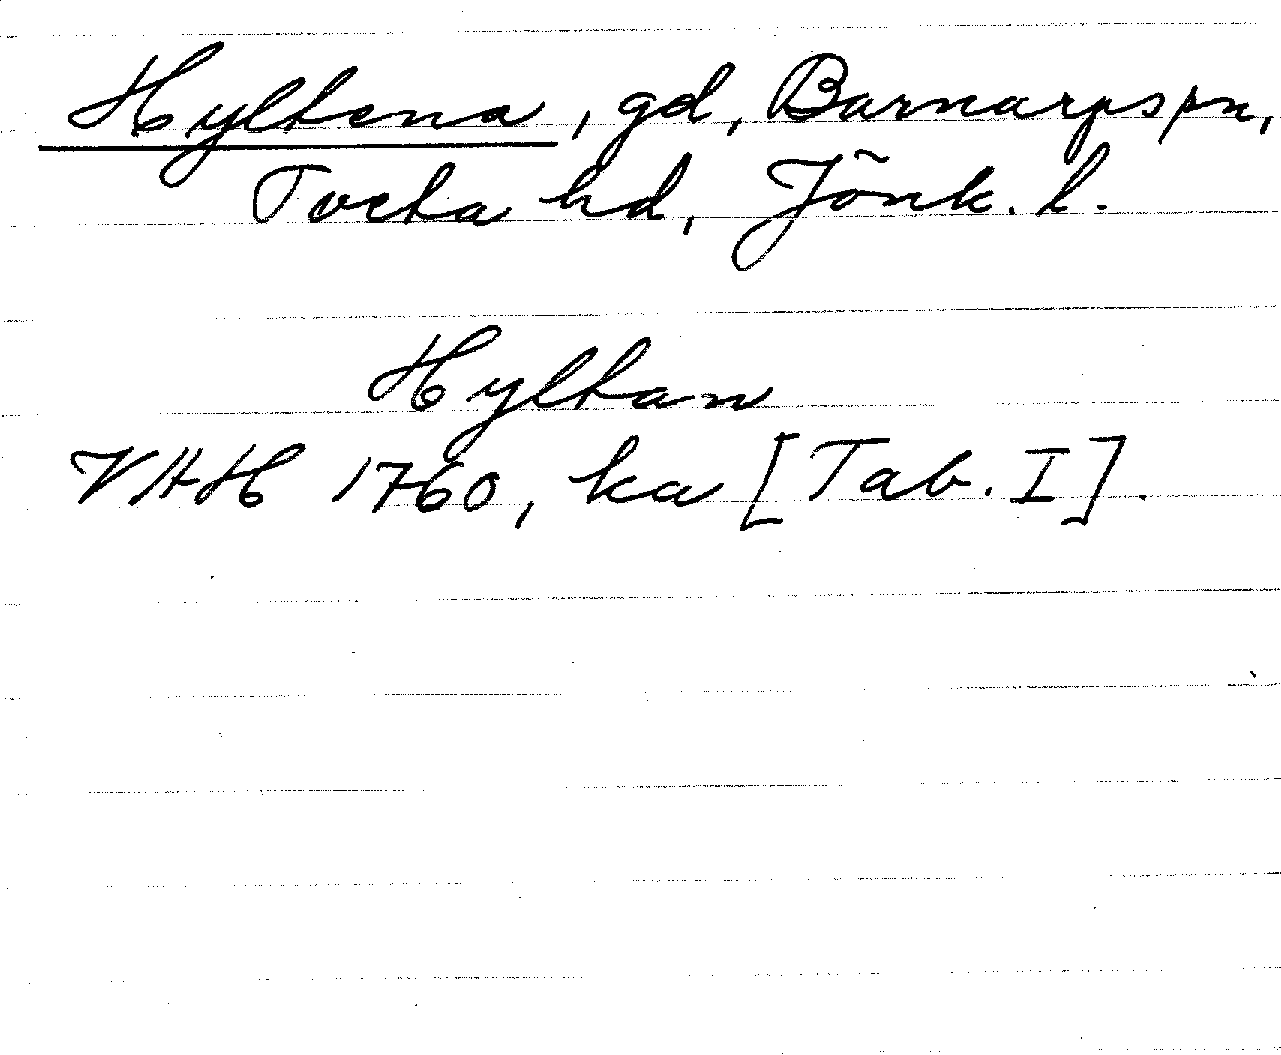 Hyltena, gd, Barnarps sn,
Tveta hd, Jönk. l.
Hyltan
VHH 1760, ka [Tab. I].